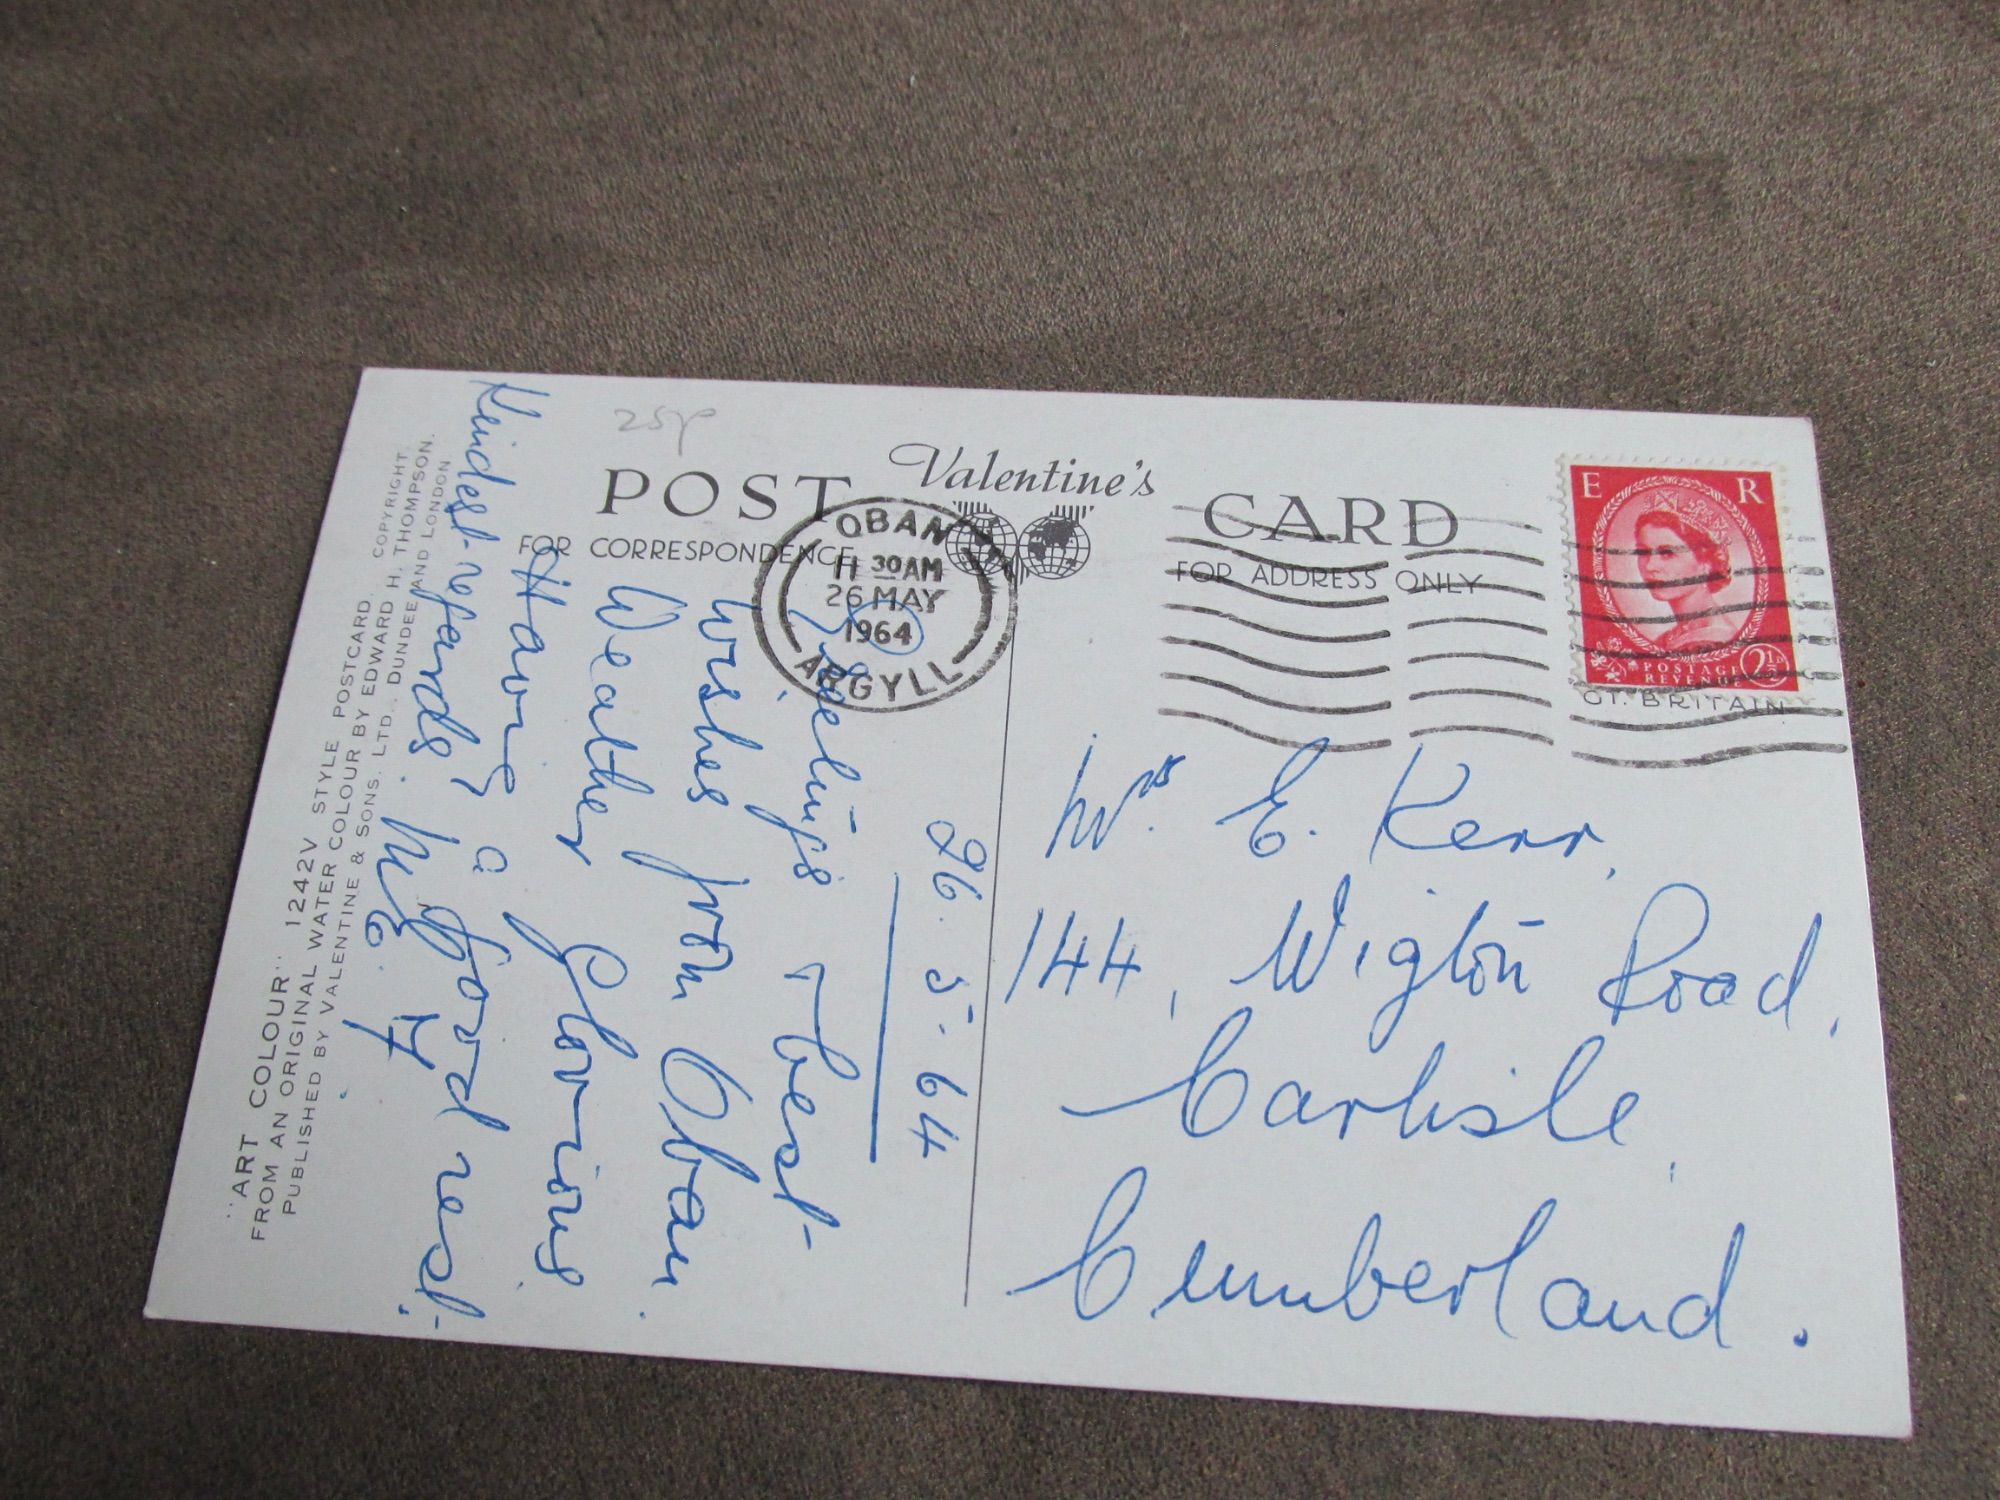 25p
Valentine's
POST CARD
FOR CORRESPONDENCE
FOR ADDRESS ONLY
OBAN
11 30 AM
26 MAY
1964
ARGYLL
E R
POSTAGE
REVENUE
2½D
GT. BRITAIN
26. 5. 64
best
Wishes from Oban.
Weather Glorious
Having a good rest.
Kindest regards.
Mrs. E. Kerr,
144, Wigton Road,
Carlisle,
Cumberland.
"ART COLOUR" 1242V STYLE POSTCARD. COPYRIGHT.
FROM AN ORIGINAL WATER COLOUR BY EDWARD H. THOMPSON.
PUBLISHED BY VALENTINE & SONS. LTD., DUNDEE AND LONDON